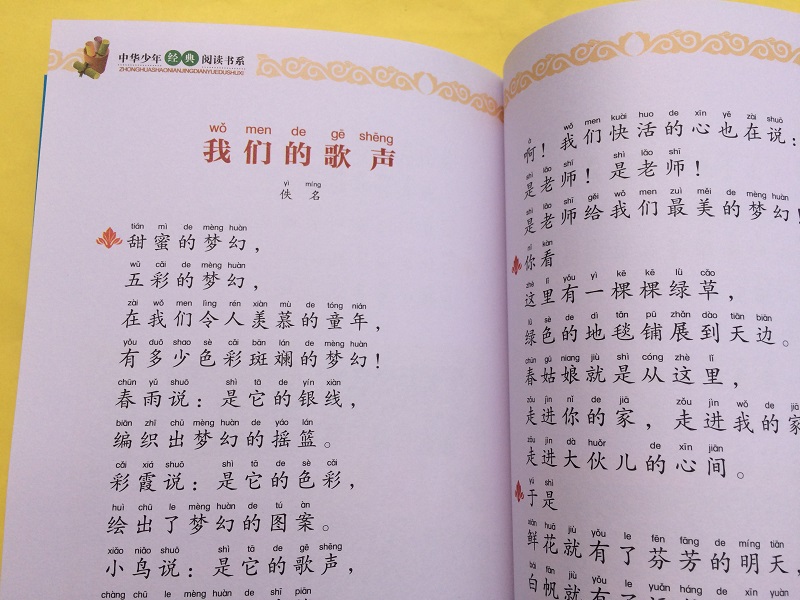 中华少年经典阅读书系
ZHONGHUASHAONIANJINGDIANYUEDUSHUXI
wǒ men de gē shēng
我们的歌声
yì míng
佚名
tián mì de mèng huàn
甜蜜的梦幻，
wǔ cǎi de mèng huàn
五彩的梦幻，
zài wǒ men lìng rén xiàn mù de tóng nián
在我们令人羡慕的童年，
yǒu duō shao sè cǎi bān lán de mèng huàn
有多少色彩斑斓的梦幻！
chūn yǔ shuō shì tā de yín xiàn
春雨说：是它的银线，
biān zhī chū mèng huàn de yáo lán
编织出梦幻的摇篮。
cǎi xiá shuō shì tā de sè cǎi
彩霞说：是它的色彩，
huì chū le mèng huàn de tú àn
绘出了梦幻的图案。
xiǎo niǎo shuō shì tā de gē shēng
小鸟说：是它的歌声，
chàng chū le mèng huàn de shī piān
ā wǒ men kuài huo de xīn yě zài shuō
啊！我们快活的心也在说：
shì lǎo shī shì lǎo shī
是老师！是老师！
shì lǎo shī gěi wǒ men zuì měi de mèng huàn
是老师给我们最美的梦幻！
nǐ kàn
你看
zhè lǐ yǒu yì kē kē lǜ cǎo
这里有一棵棵绿草，
lǜ sè de dì tǎn pū zhǎn dào tiān biān
绿色的地毯铺展到天边。
chūn gū niang jiù shì cóng zhè lǐ
春姑娘就是从这里，
zǒu jìn nǐ de jiā zǒu jìn wǒ de jiā
走进你的家，走进我的家
zǒu jìn dà huǒr de xīn jiān
走进大伙儿的心间。
yú shì
于是
xiān huā jiù yǒu le fēn fāng de míng tiān
鲜花就有了芬芳的明天，
bái fān jiù yǒu le yuǎn háng de xīn yuàn
白帆就有了